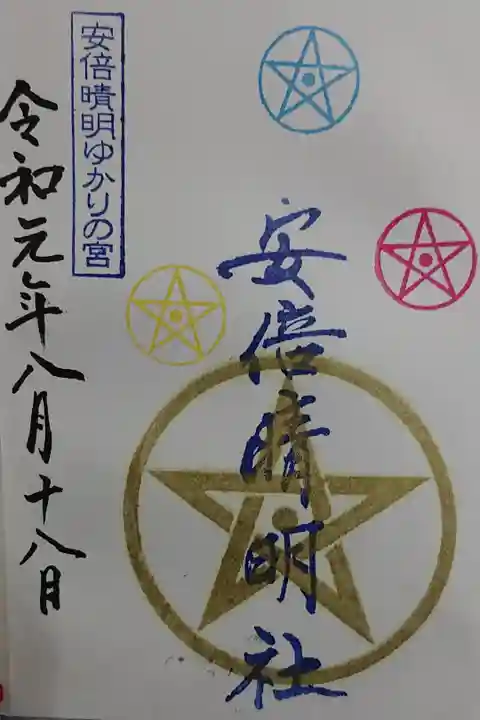 安倍晴明社
安倍晴明ゆかりの宮
令和元年八月十八日